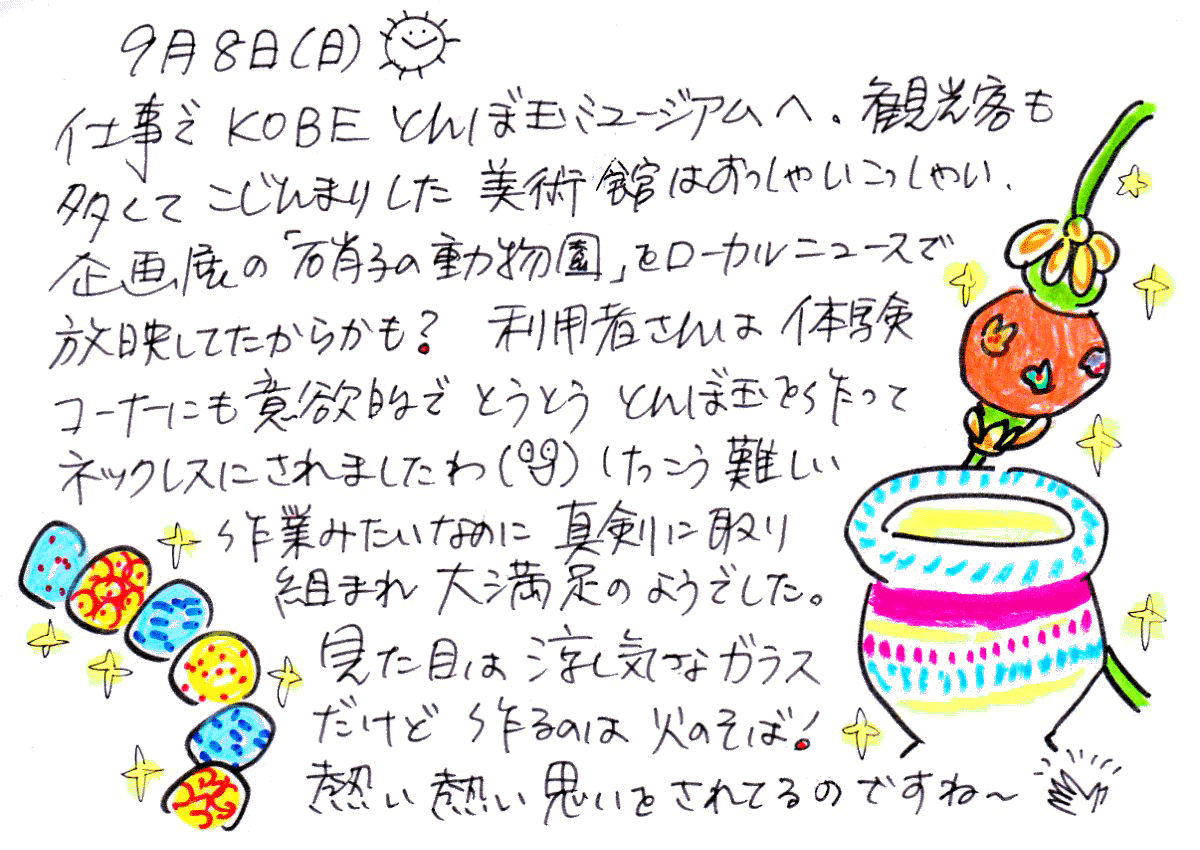 9月8日(日)
仕事で KOBE とんぼ玉ミュージアムへ。観光客も
多くて こじんまりした 美術館はおっしゃいこっしゃい、
企画展の「硝子の動物園」をローカルニュースで
放映してたからかも? 利用者さんは 体験
コーナーにも意欲的で とうとう とんぼ玉を作って
ネックレスにされましたわ( ) けっこう 難しい
作業みたいなのに 真剣に取り
組まれ 大満足のようでした。
見た目は 涼し気なガラス
だけど 作るのは 火のそば!
熱い熱い思いをされてるのですね〜